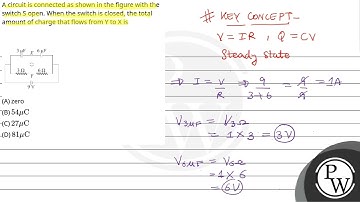 A circuit is connected as shown in the figure with the
switch S open. When the switch is closed, the total
amount of charge that flows from Y to X is
3 μF X 6 μF
S
3 Ω Y 6 Ω
9 V
(A) zero
(B) 54μC
(C) 27μC
(D) 81μC
# KEY CONCEPT-
V = IR , Q = CV
Steady State
⇒ I = V/R ⇒ 9/(3+6) = 9/9 = 1A
V3μF = V3Ω
= 1 × 3 = 3V
V6μF = V6Ω
= 1 × 6
= 6V
PW